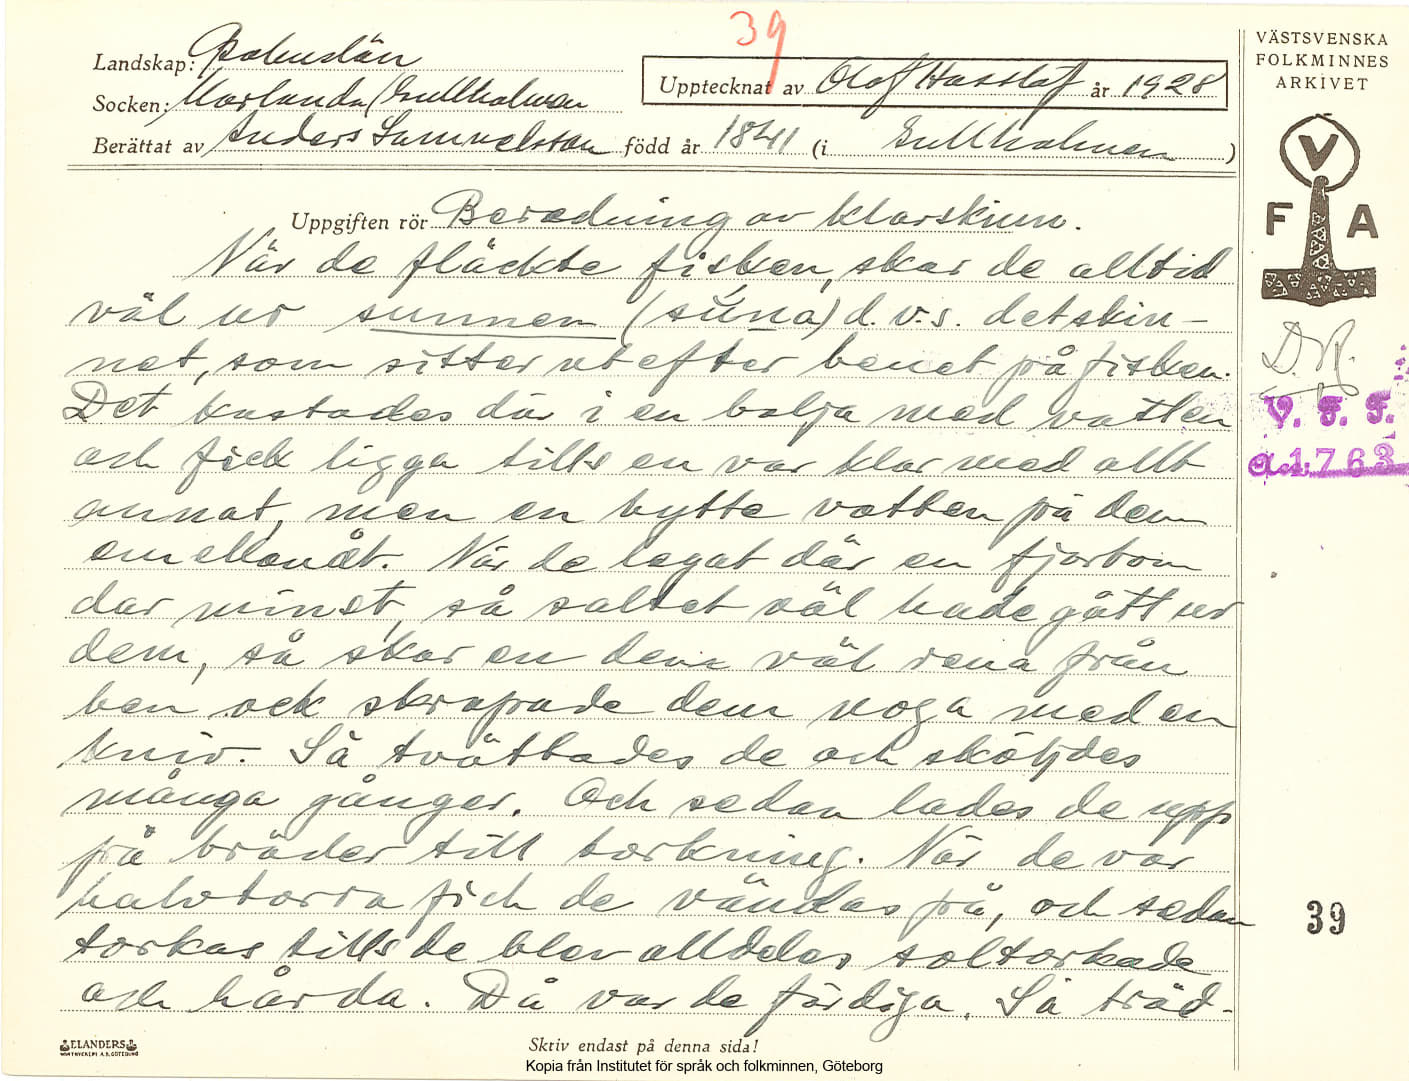 39
Landskap: Bohuslän
Socken: Morlanda (Gullholmen
Upptecknat av Olof Hasslöf år 1928
Berättat av Anders Samuelsson född år 1841 (i Gullholmen )
VÄSTSVENSKA
FOLKMINNES
ARKIVET
V
F A
Uppgiften rör Beredning av klarskinn.
När de fläckte fisken, skar de alltid
väl ur sunnen (súna) d.v.s. det skin-
net, som sitter utefter benet på fisken.
Det kastades där i en balja med vatten
och fick ligga tills en var klar med allt
annat, men en bytte vatten på dem
emellanåt. När de legat där en fjorton
dar minst, så saltet väl hade gått ur
dem, så skar en dem väl rena från
ben ock skrapade dem noga med en
kniv. Så tvättades de och sköljdes
många gånger. Och sedan lades de upp
på bräder till torkning. När de var
halvtorra fick de vändas på, och sedan
torkas tills de blev alldeles soltorkade
och hårda. Då var de färdiga. Så träd-
V. F. F.
1763
39
ELANDERS
BOKTRYCKERI A.B. GÖTEBORG
Skriv endast på denna sida!
Kopia från Institutet för språk och folkminnen, Göteborg